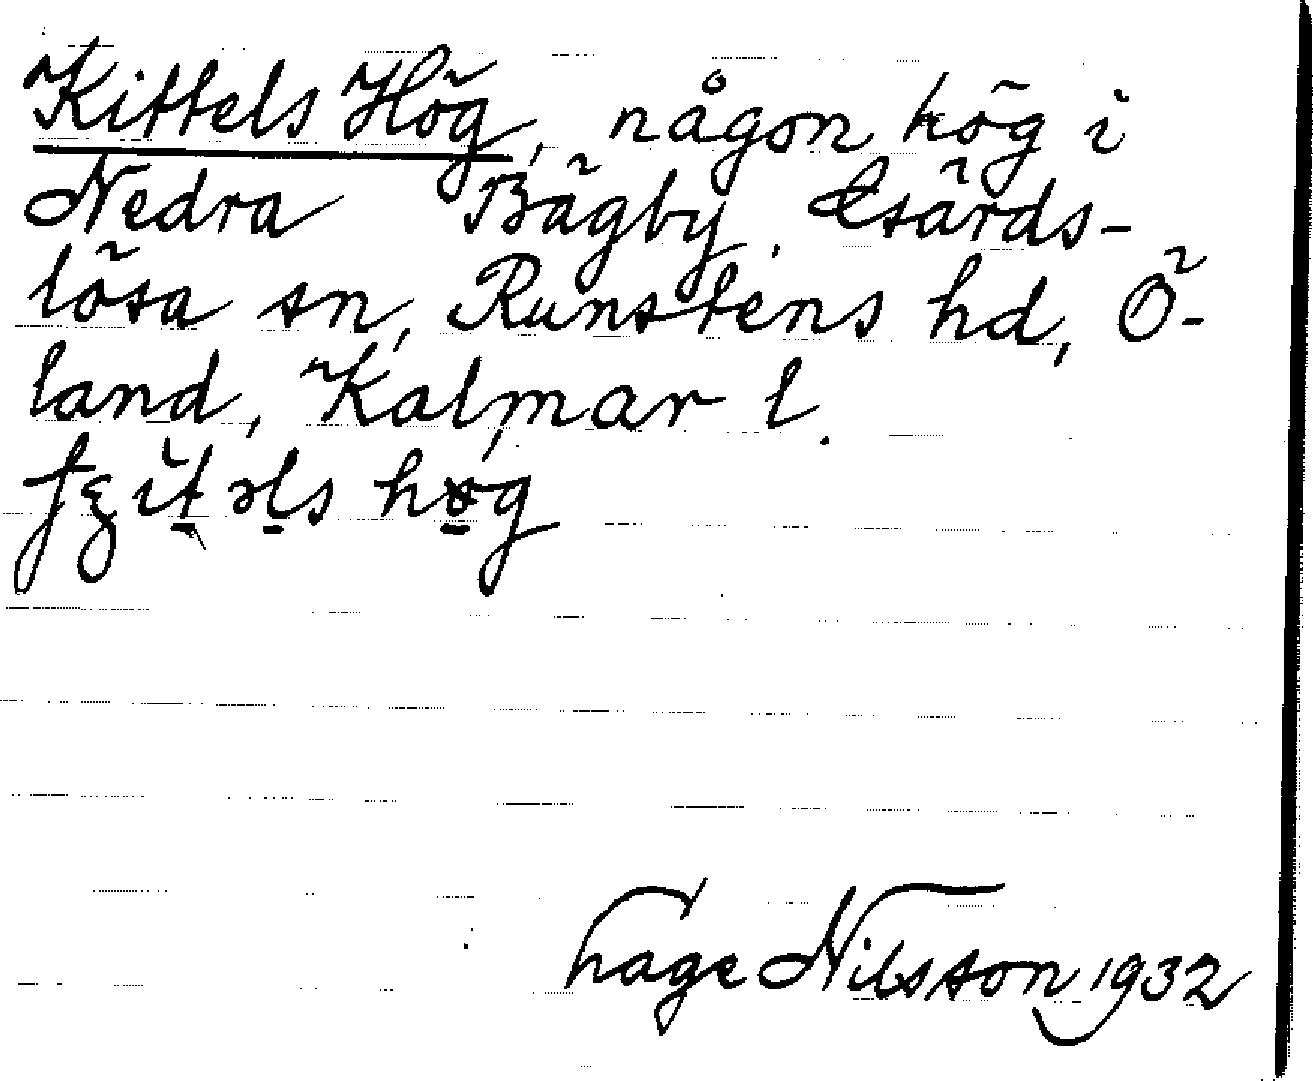 Kittels Hög, någon hög i
Nedra Bägby, Gärds-
lösa sn, Runstens hd, Ö-
land, Kalmar l.
hög
Tage Nilsson 1932